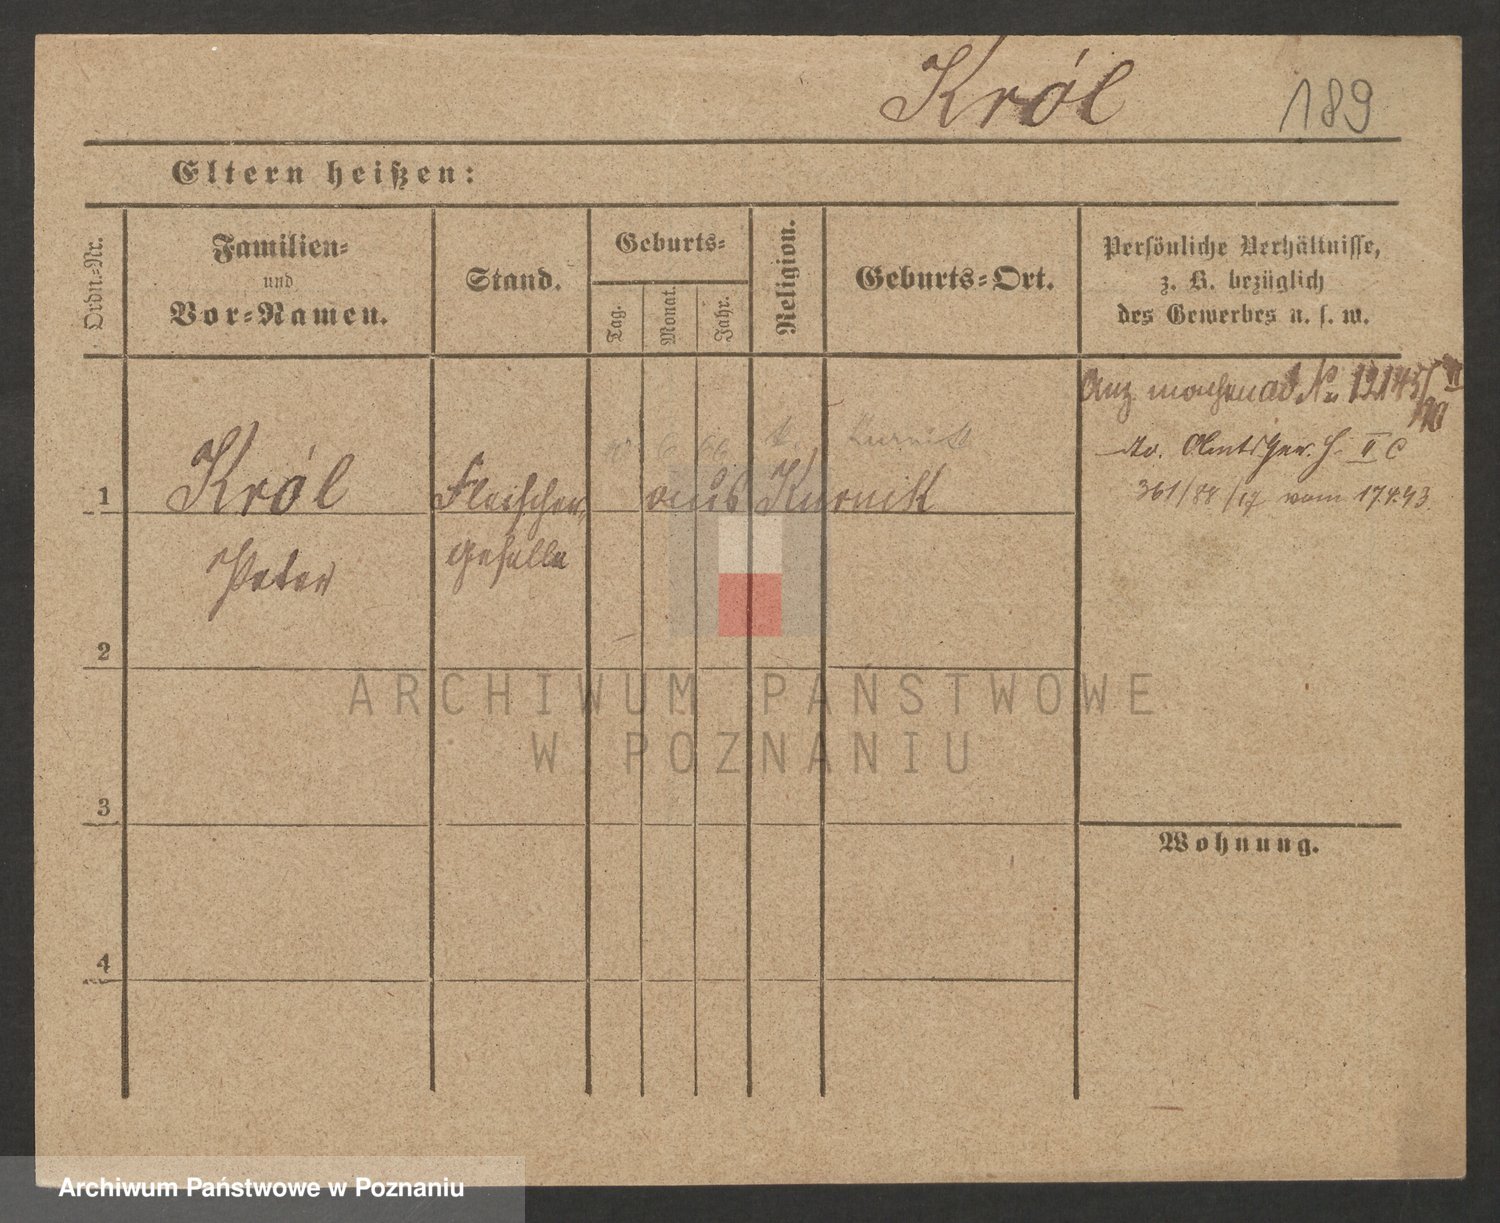 Król 189
Eltern heißen:
Ordn.-Nr.
Familien-
und
Vor-Namen.
Stand.
Geburts-
Tag.
Monat.
Jahr.
Religion.
Geburts-Ort.
Persönliche Verhältnisse,
z. B. bezüglich
des Gewerbes u. s. w.
1
Król
Peter
Fleischer
geselle
k. Kurnik
aus Kurnik
dto. Amtsger. II C
vom
2
3
4
Wohnung.
ARCHIWUM PAŃSTWOWE
W POZNANIU
Archiwum Państwowe w Poznaniu